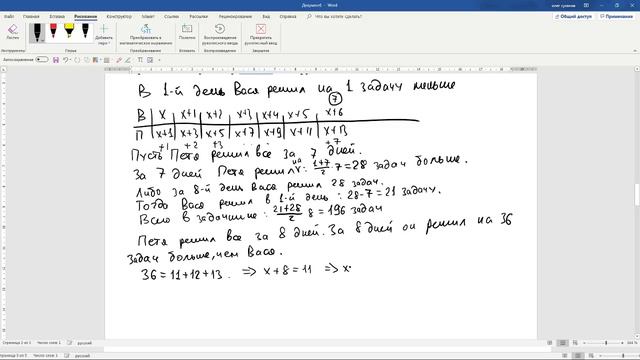 Документ1 - Word
Файл Главная Вставка Рисование Конструктор Макет Ссылки Рассылки Рецензирование Вид Справка Что вы хотите сделать?
Общий доступ Примечания
Добавить перо
Преобразовать в математическое выражение
Полотно
Воспроизведение рукописного ввода
Прекратить рукописный ввод
Инструменты Перья Преобразовать Вставка
Автосохранение
В 1-й день Вася решил на 1 задачу меньше
7
В x x+1 x+2 x+3 x+4 x+5 x+6
П x+1 x+3 x+5 x+7 x+9 x+11 x+13
+1 +2 +3 +7
Пусть Петя решил все за 7 дней.
За 7 дней Петя решил на (1+7)/2 · 7 = 28 задач больше.
Либо за 8-й день Вася решил 28 задач.
Тогда Вася решил в 1-й день: 28-7=21 задачу.
Всего в задачнике: (21+28)/2 · 8 = 196 задач
Петя решил все за 8 дней. За 8 дней он решил на 36
задач больше, чем Вася.
36 = 11+12+13. ⇒ x+8=11 ⇒ x
Страница 2 из 3 Число слов: 1 русский